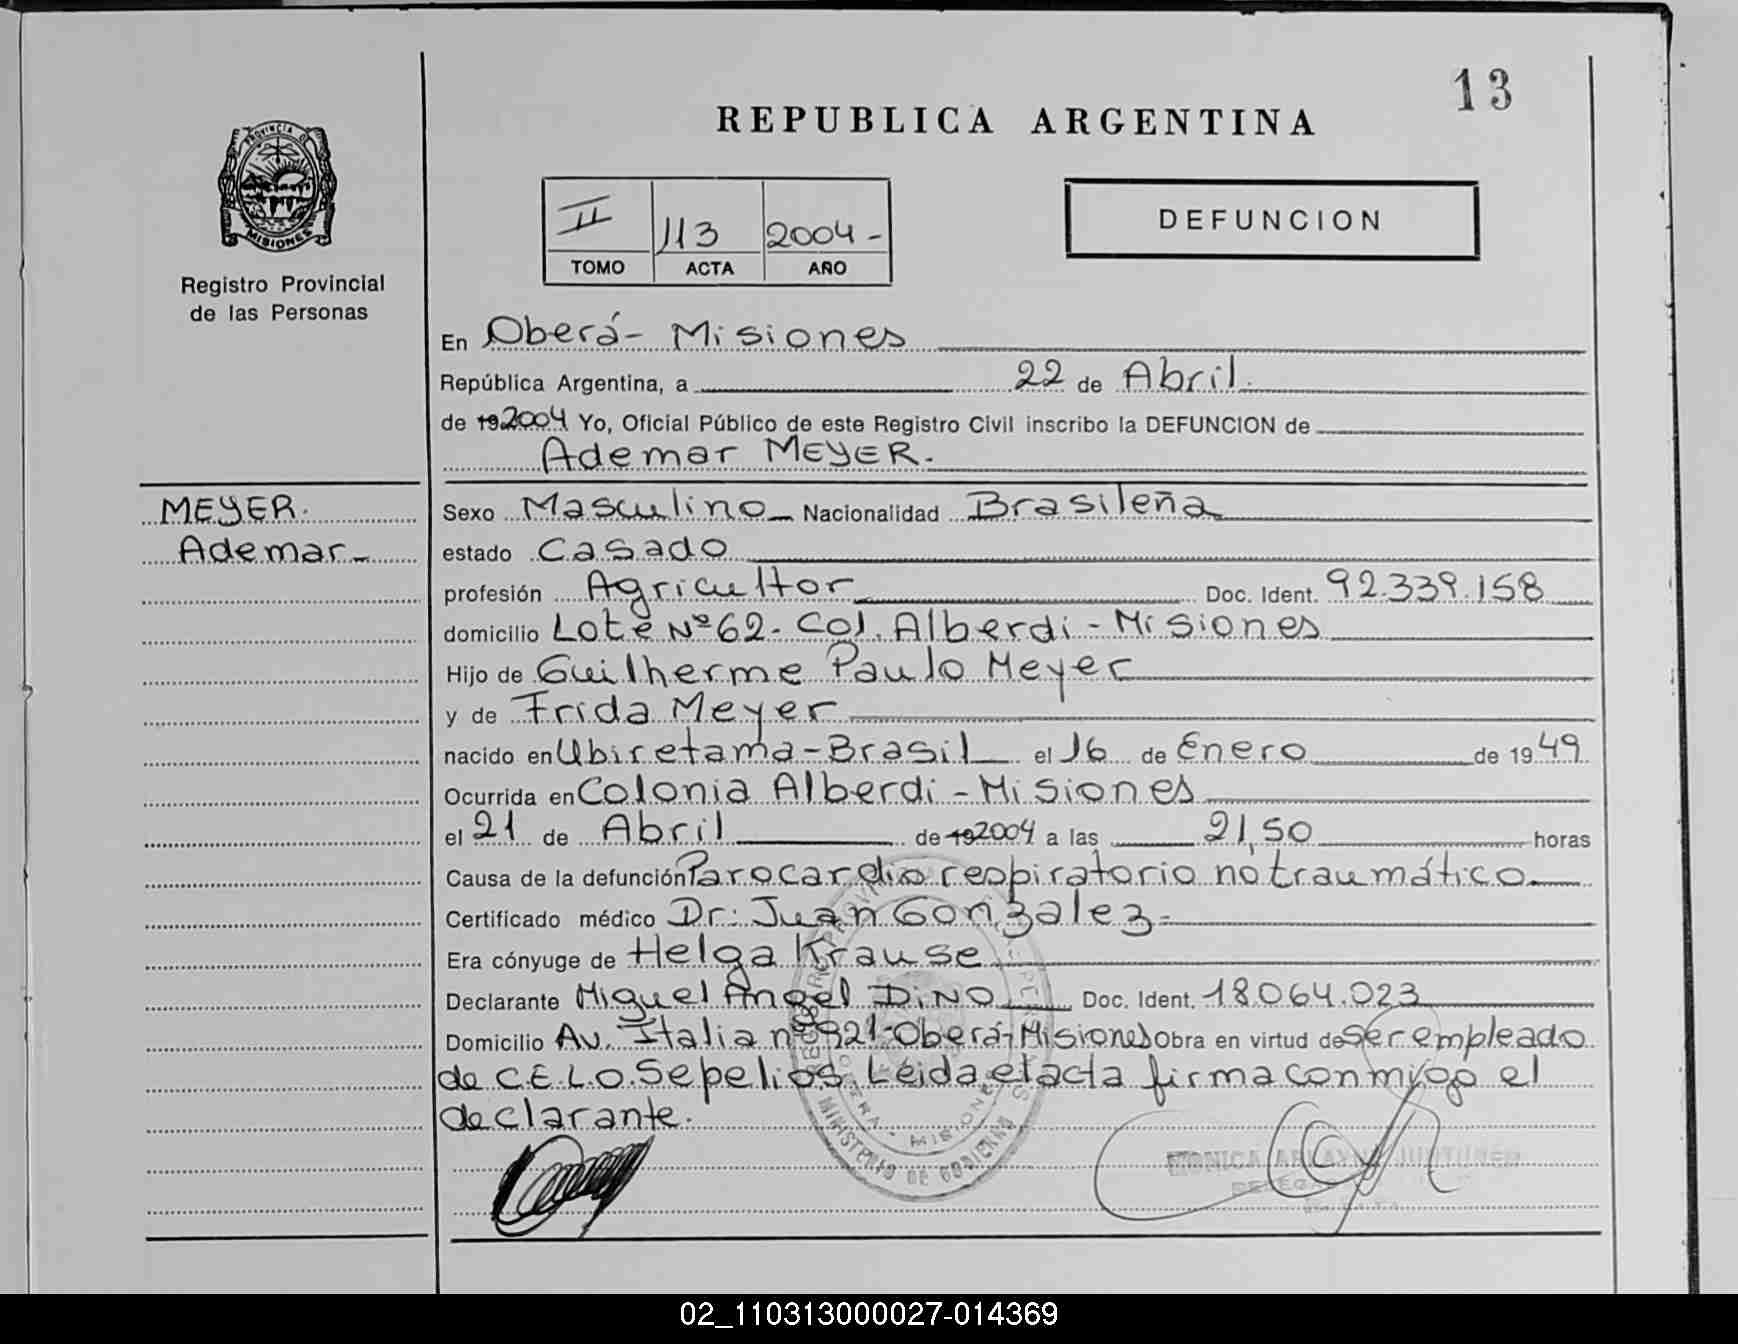 13
REPUBLICA ARGENTINA
PROVINCIA DE
MISIONES
Registro Provincial
de las Personas
II 113 2004-
TOMO ACTA AÑO
DEFUNCION
En Oberá- Misiones
República Argentina, a 22 de Abril.
de 19 2004 Yo, Oficial Público de este Registro Civil inscribo la DEFUNCION de
Ademar MEYER.
MEYER.
Ademar-
Sexo Masculino Nacionalidad Brasileña
estado Casado
profesión Agricultor Doc. Ident. 92.339.158
domicilio Lote Nº 62- Col. Alberdi - Misiones
Hijo de Guilherme Paulo Meyer
y de Frida Meyer
nacido en Ubiretama-Brasil el 16 de Enero de 1949
Ocurrida en Colonia Alberdi - Misiones
el 21 de Abril de 19 2004 a las 21,50 horas
Causa de la defunción Parocardio respiratorio no traumático
Certificado médico Dr: Juan Gonzalez-
Era cónyuge de Helga Krause
Declarante Miguel Angel DiNO Doc. Ident. 18.064.023
Domicilio Av. Italia nº 921-Oberá-Misiones Obra en virtud de ser empleado
de C.E.L.O. Sepelios, Leida el acta firma conmigo el
declarante.
MINISTERIO DE GOBIERNO
MONICA
02_110313000027-014369